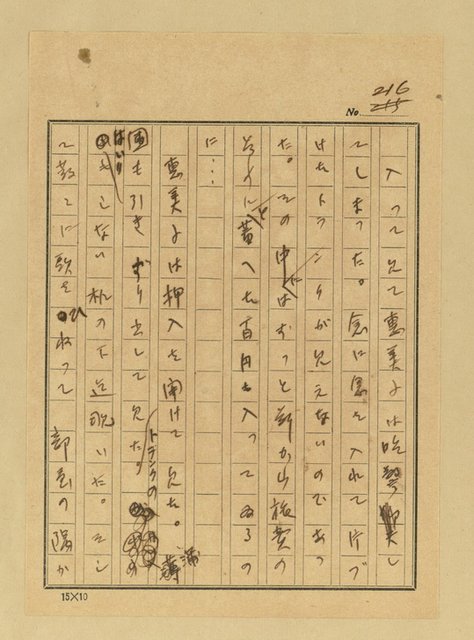 No. 216
入って見て恵美子は吃驚し
てしまった。念に念を入れて片づ
けたトランクが見えないのであっ
た。その中にはずっと前から旅費の
ために蓄へた百円も入ってゐるの
に…
恵美子は押入を開けて見た。蒲
団も引きずり出して見たりトランクの
はいりさうもない机の下迄覗いた。そし
て散々に頭をひねって部屋の隅か
15×10